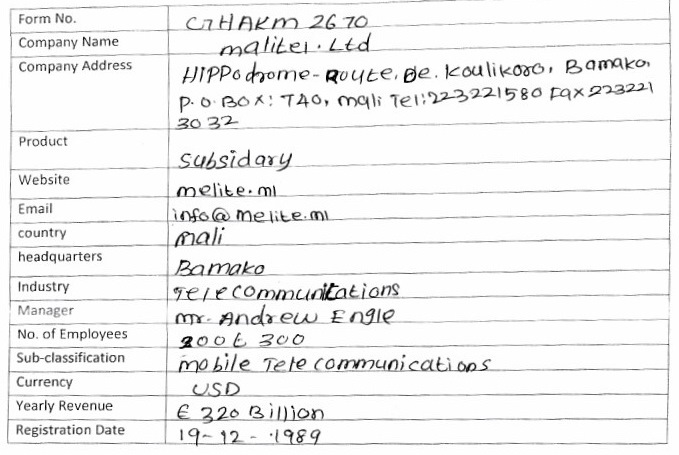 Form No. C7HAKM 2670
Company Name malitel.Ltd
Company Address HIPPodrome-Route.De.Koulikoro, Bamako,
P.O.BOX: 740, mali Tel:223221580 Fax 223221
3032
Product subsidary
Website melite.ml
Email info@melite.ml
country mali
headquarters Bamako
Industry Telecommunications
Manager mr. Andrew Engle
No. of Employees 200 t 300
Sub-classification mobile Telecommunications
Currency USD
Yearly Revenue € 320 Billion
Registration Date 19-12-1989